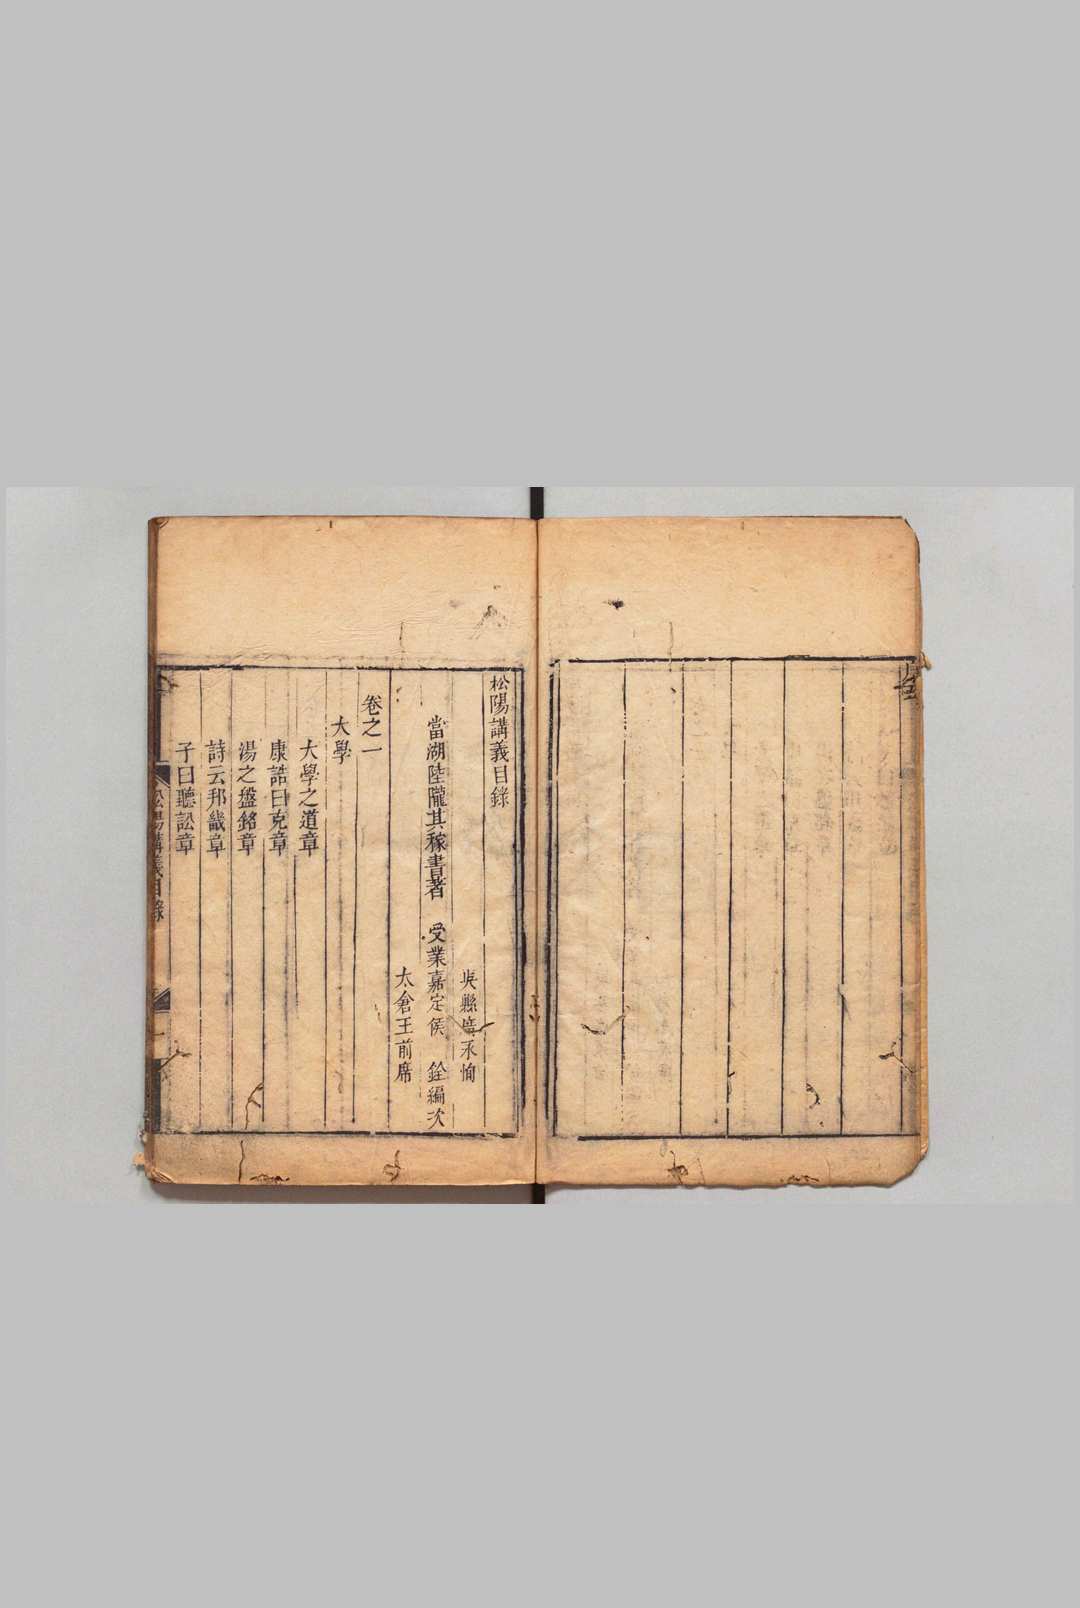 松陽講義目錄
吳縣席永恂
當湖陸隴其稼書著 受業嘉定侯 銓編次
太倉王前席
卷之一
大學
大學之道章
康誥曰克章
湯之盤銘章
詩云邦畿章
子曰聽訟章
松陽講義目錄
一